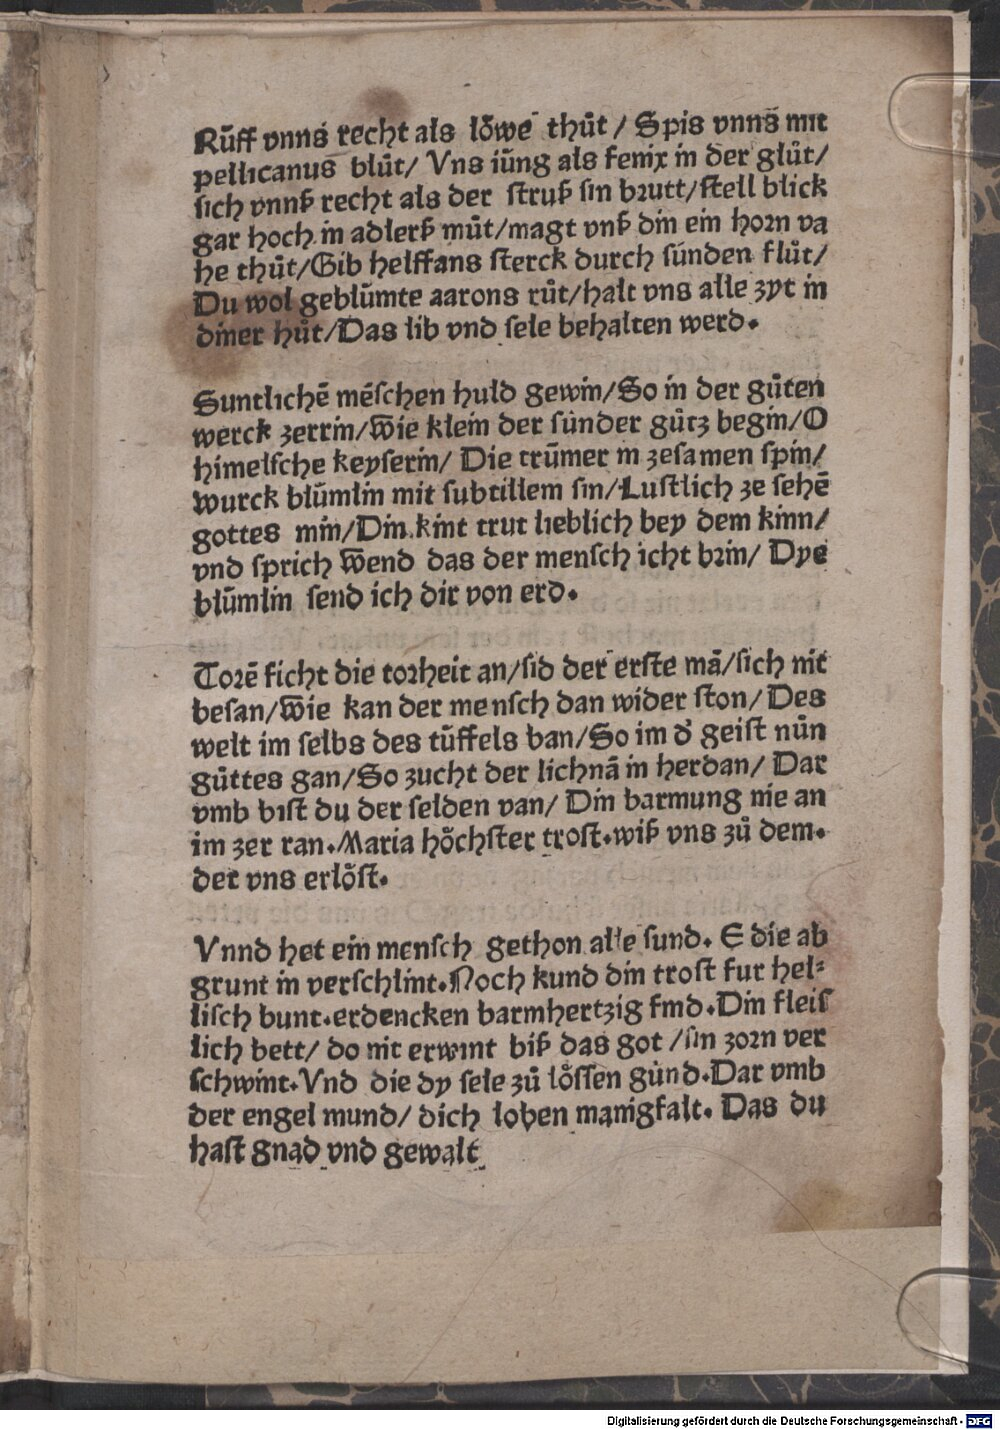 Rūff vnns recht als löwe thůt / Spis vnns mit
pellicanus blůt/ Vns iūng als fenix in der glůt/
sich vnnß recht als der struß sin brutt/stell blick
gar hoch in adlerß můt/magt vnß din ein horn va
he thůt/Gib helffans sterck durch súnden flůt/
Du wol geblūmte aarons růt/halt vns alle zyt in
diner hůt/Das lib vnd sele behalten werd.
Suntlichē mēschen huld gewin/So in der gůten
werck zerrin/W̄ie klein der súnder gůtz begin/O
himelsche keyserin/ Die trūmer in zesamen spin/
wurck blūmlin mit subtillem sin/Lustlich ze sehē
gottes min/Din kint trut lieblich bey dem kinn/
vnd sprich W̄end das der mensch icht brin/ Dye
blūmlin send ich dir von erd.
Torē ficht die torheit an/sid der erste mā/sich nit
besan/W̄ie kan der mensch dan wider ston/Des
welt im selbs des tūffels ban/So im d̓ geist nūn
gůttes gan/So zucht der lichnā in herdan/ Dar
vmb bist du der selden van/ Din barmung nie an
im zer ran.Maria höchster trost.wiß vns zů dem.
der vns erlöst.
Vnnd het ein mensch gethon alle sund. E die ab
grunt in verschlint.Noch kund din trost fur hel⸗
lisch bunt.erdencken barmhertzig find.Din fleis
lich bett/ do nit erwint biß das got /sin zorn ver
schwint.Vnd die dy sele zů lössen gúnd.Dar vmb
der engel mund/ dich loben manigfalt. Das du
hast gnad vnd gewalt
Digitalisierung gefördert durch die Deutsche Forschungsgemeinschaft - DFG